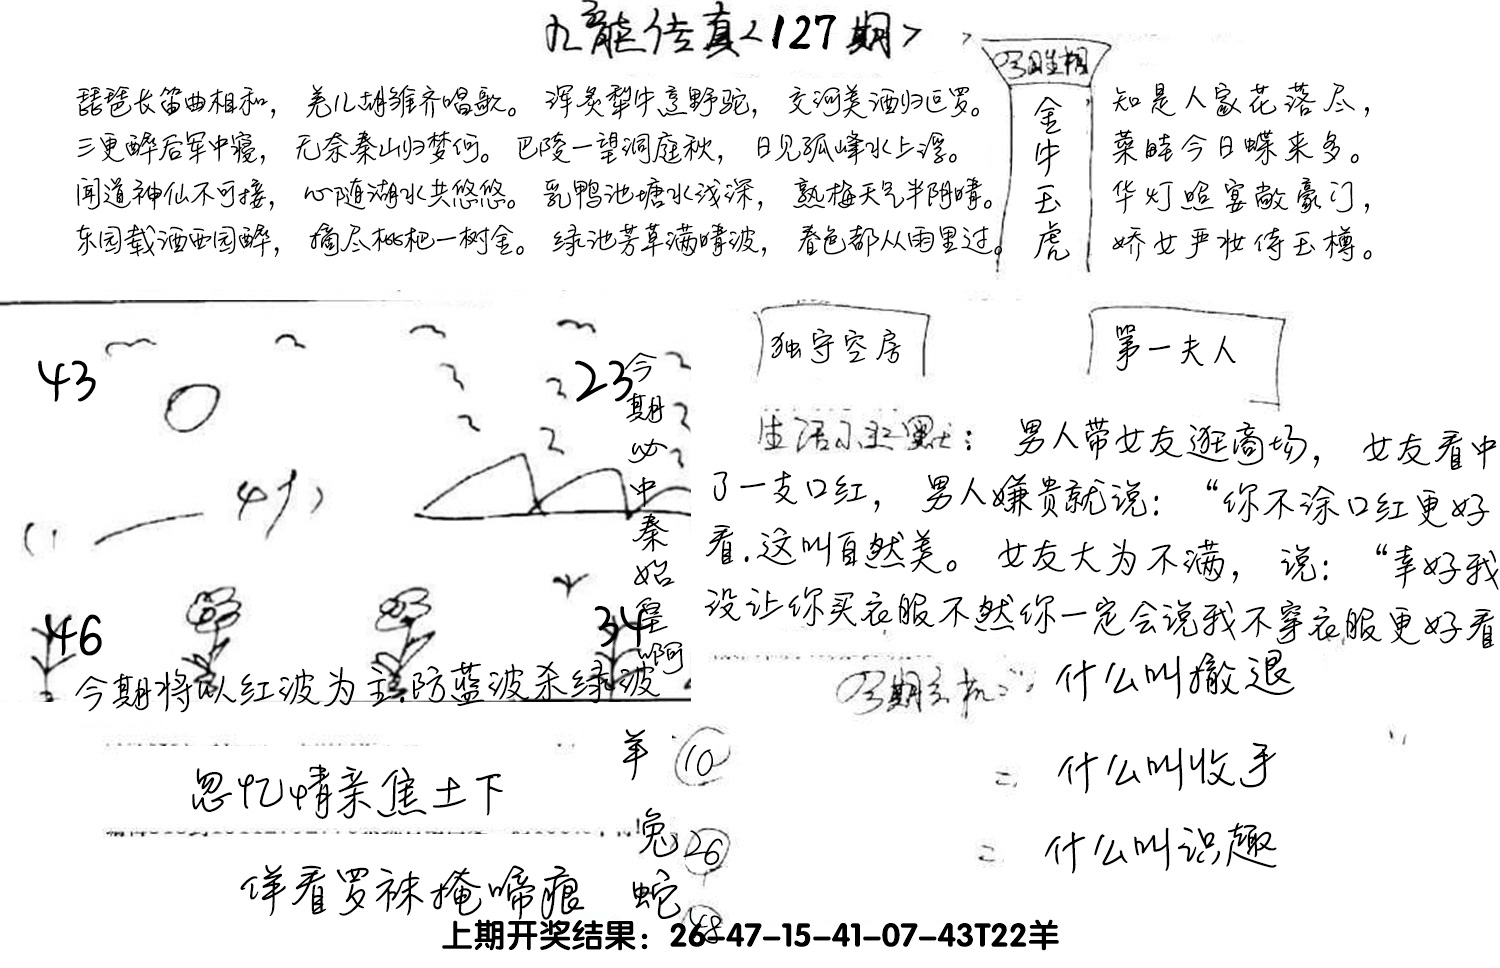 九龙传真<127期>
琵琶长笛曲相和，羌儿胡雏齐唱歌。浑炙犁牛烹野驼，交河美酒归叵罗。
三更醉后军中寝，无奈秦山归梦何。巴陵一望洞庭秋，日见孤峰水上浮。
闻道神仙不可接，心随湖水共悠悠。乳鸭池塘水浅深，熟梅天气半阴晴。
东园载酒西园醉，摘尽枇杷一树金。绿池芳草满晴波，春色都从雨里过。
金牛玉虎
知是人家花落尽，
菜畦今日蝶来多。
华灯照宴敞豪门，
娇女严妆侍玉樽。
43
23
46
34
今期必中秦始皇啊
今期将以红波为主.防蓝波杀绿波
独守空房
第一夫人
生活幽默：男人带女友逛商场，女友看中
了一支口红，男人嫌贵就说：“你不涂口红更好
看.这叫自然美。女友大为不满，说：“幸好我
没让你买衣服不然你一定会说我不穿衣服更好看
什么叫撤退
= 什么叫收手
= 什么叫识趣
忽忆情亲焦土下
佯看罗袜掩啼痕
羊 10
兔 26
蛇 48
上期开奖结果：26-47-15-41-07-43T22羊